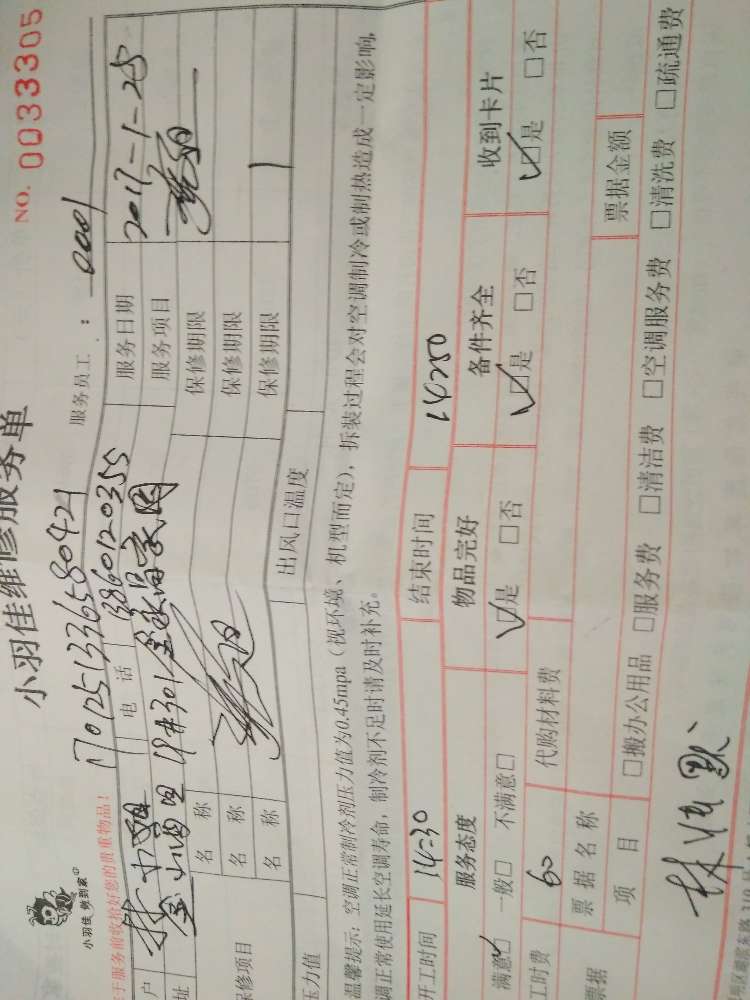 小羽佳维修服务单
NO. 0033305
小羽佳 做到家
服务员工：0001
1701251336580421
于服务前收拾好您的贵重物品！
户 电话 13860120355 服务日期 2017-1-25
址 301 家园 服务项目
保修项目
名称 保修期限
名称 保修期限
名称 保修期限
压力值 出风口温度
温馨提示：空调正常制冷剂压力值为0.45mpa（视环境、机型而定），拆装过程会对空调制冷或制热造成一定影响，
调正常使用延长空调寿命，制冷剂不足时请及时补充。
开工时间 14:30 结束时间
服务态度 物品完好 备件齐全 收到卡片
满意□ 一般□ 不满意□ □是 □否 □是 □否 □是 □否
工时费 60 代购材料费
票据 票据名称 票据金额
项目 □搬办公用品 □服务费 □清洁费 □空调服务费 □清洗费 □疏通费